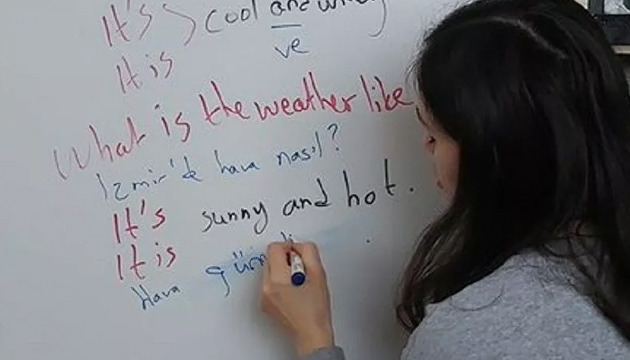 It's cool and windy
It is ve
What is the weather like
Izmir'de hava nasıl?
It's sunny and hot.
It is
Hava